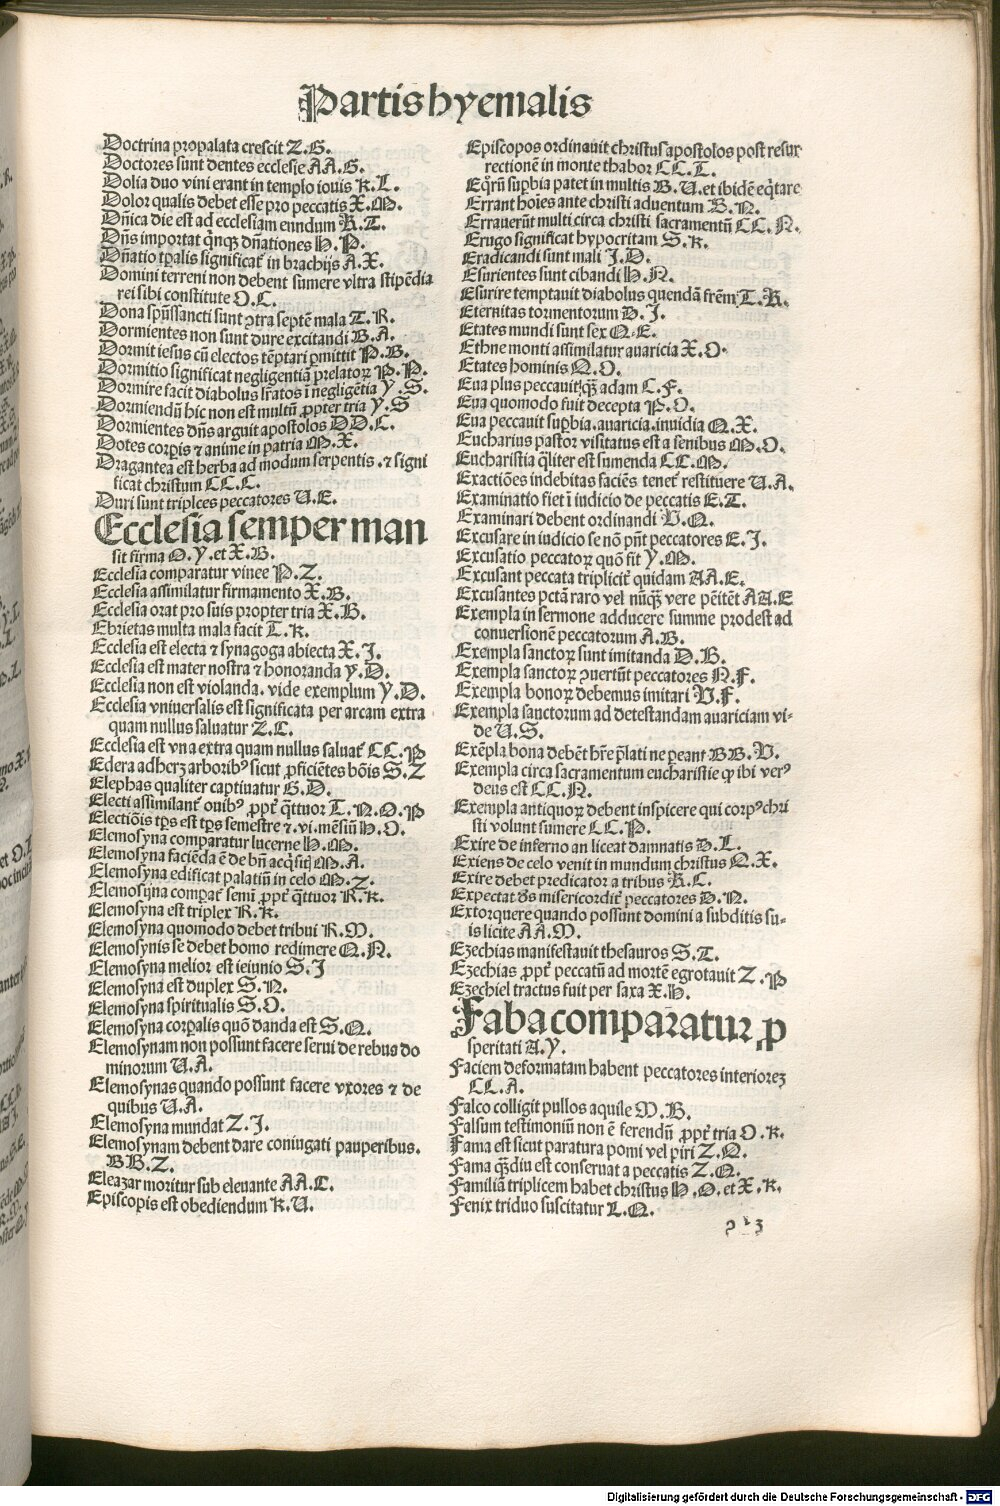 Partis hyemalis
Doctrina propalata crescit Z.G.
Doctores sunt dentes ecclesie AA.G.
Dolia duo vini erant in templo iouis K.L.
Dolor qualis debet esse pro peccatis X.M.
Dñica die est ad ecclesiam eundum R.T.
Dñs importat qnqꝫ dñationes H.P.
Dñatio tpalis significat in brachijs A.X.
Domini terreni non debent sumere vltra stipẽdia
rei sibi constitute O.C.
Dona spũssancti sunt ꝯtra septẽ mala T.R.
Dormientes non sunt dure excitandi B.A.
Dormit iesus cũ electos tẽptari pmittit P.B.
Dormitio significat negligentiã prelatoꝝ P.P.
Dormire facit diabolus lr̃atos ĩ negligẽtia Y.S.
Dormiendũ hic non est multũ ꝓpter tria Y.S
Dormientes dñs arguit apostolos DD.C.
Dotes corpis ⁊ anime in patria M.X.
Dragantea est herba ad modum serpentis .⁊ signi
ficat christum CC.C.
Duri sunt triplces peccatores U.E.
Ecclesia semper man
sit firma O.Y. et X.B.
Ecclesia comparatur vinee P.Z.
Ecclesia assimilatur firmamento X.B.
Ecclesia orat pro suis propter tria X.B.
Ebrietas multa mala facit T.K.
Ecclesia est electa ⁊ synagoga abiecta X.J.
Ecclesia est mater nostra ⁊ honoranda Y.D.
Ecclesia non est violanda. vide exemplum Y.D.
Ecclesia vniuersalis est significata per arcam extra
quam nullus saluatur Z.C.
Ecclesia est vna extra quam nullus saluat CC.P
Edera adherꝫ arboribꝰ sicut ꝓficiẽtes bõis S.Z
Elephas qualiter captiuatur G.D.
Electi assimilant ouibꝰ ꝓpt qttuor T.N.O.P
Electiõis tps est tps semestre ⁊ .vi. mẽsiũ H.O.
Elemosyna comparatur lucerne H.M.
Elemosyna faciẽda ẽ de bñ acqsitĩ M.A.
Elemosyna edificat palatiũ in celo M.Z.
Elemosyna compat semi ꝓpt qttuor R.K.
Elemosyna est triplex R.K.
Elemosyna quomodo debet tribui R.M.
Elemosynis se debet homo redimere Q.N.
Elemosyna melior est ieiunio S.J
Elemosyna est duplex S.N.
Elemosyna spiritualis S.O.
Elemosyna corpalis quõ danda est S.Q.
Elemosynam non possunt facere serui de rebus do
minorum U.A.
Elemosynas quando possunt facere vxores ⁊ de
quibus U.A.
Elemosyna mundat Z.J.
Elemosynam debent dare coniugati pauperibus.
BB.Z.
Eleazar moritur sub elevante AA.C.
Episcopis est obediendum K.U.
Episcopos ordinauit christus apostolos post resur
rectionẽ in monte thabor CC.T.
Eqrñ supbia patet in multis B.U. et ibidẽ eqtare
Errant hoĩes ante christi aduentum B.N.
Errauerũt multi circa christi sacramentũ CC.N.
Erugo significat hypocritam S.K.
Eradicandi sunt mali J.D.
Esurientes sunt cibandi H.N.
Esurire temptauit diabolus quendã frẽm T.R.
Eternitas tormentorum D.J.
Etates mundi sunt sex Q.E.
Ethne monti assimilatur auaricia X.O.
Etates hominis N.O.
Eua plus peccauit qꝫ adam C.F.
Eua quomodo fuit decepta P.O.
Eua peccauit supbia. auaricia. inuidia Q.X.
Eucharius pastor visitatus est a senibus M.O.
Eucharistia qliter est sumenda CC.M.
Exactiões indebitas faciẽs tenet restituere U.A.
Examinatio fiet ĩ iudicio de peccatis E.T.
Examinari debent ordinandi V.Q.
Excusare in iudicio se nõ pñt peccatores E.J.
Excusatio peccatoꝝ quõ fit Y.M.
Excusant peccata triplicit quidam AA.E.
Excusantes pctã raro vel nũqꝫ vere pẽitẽt AA.E
Exempla in sermone adducere summe prodest ad
conuersionẽ peccatorum A.B.
Exempla sanctoꝝ sunt imitanda D.B.
Exempla sanctoꝝ ꝯuertũt peccatores N.F.
Exempla bonoꝝ debemus imitari V.F.
Exempla sanctorum ad detestandam auariciam vi-
de U.S.
Exẽpla bona debẽt hr̃e plati ne peant BB.V.
Exempla circa sacramentum eucharistie ꝙ ibi verꝰ
deus est CC.N.
Exempla antiquoꝝ debent inspicere qui corpꝰ chri
sti volunt sumere CC.P.
Exire de inferno an liceat damnatis D.L.
Exiens de celo venit in mundum christus Q.X.
Exire debet predicator a tribus R.C.
Expectat ds misericordit peccatores D.N.
Extorquere quando possunt domini a subditis su-
is licite AA.M.
Ezechias manifestauit thesauros S.T.
Ezechias ꝓpt peccatũ ad mortẽ egrotauit Z.P
Ezechiel tractus fuit per saxa X.H.
Faba comparatur ꝓ
speritati A.Y.
Faciem deformatam habent peccatores interiorez
CC.A.
Falco colligit pullos aquile M.B.
Falsum testimoniũ non ẽ ferendũ ꝓpt tria O.K.
Fama est sicut paratura pomi vel piri Z.N.
Fama qꝫdiu est conseruat a peccatis Z.Q.
Familiã triplicem habet christus H.O. et X.K.
Fenix triduo suscitatur L.Q.
Digitalisierung gefördert durch die Deutsche Forschungsgemeinschaft - DFG